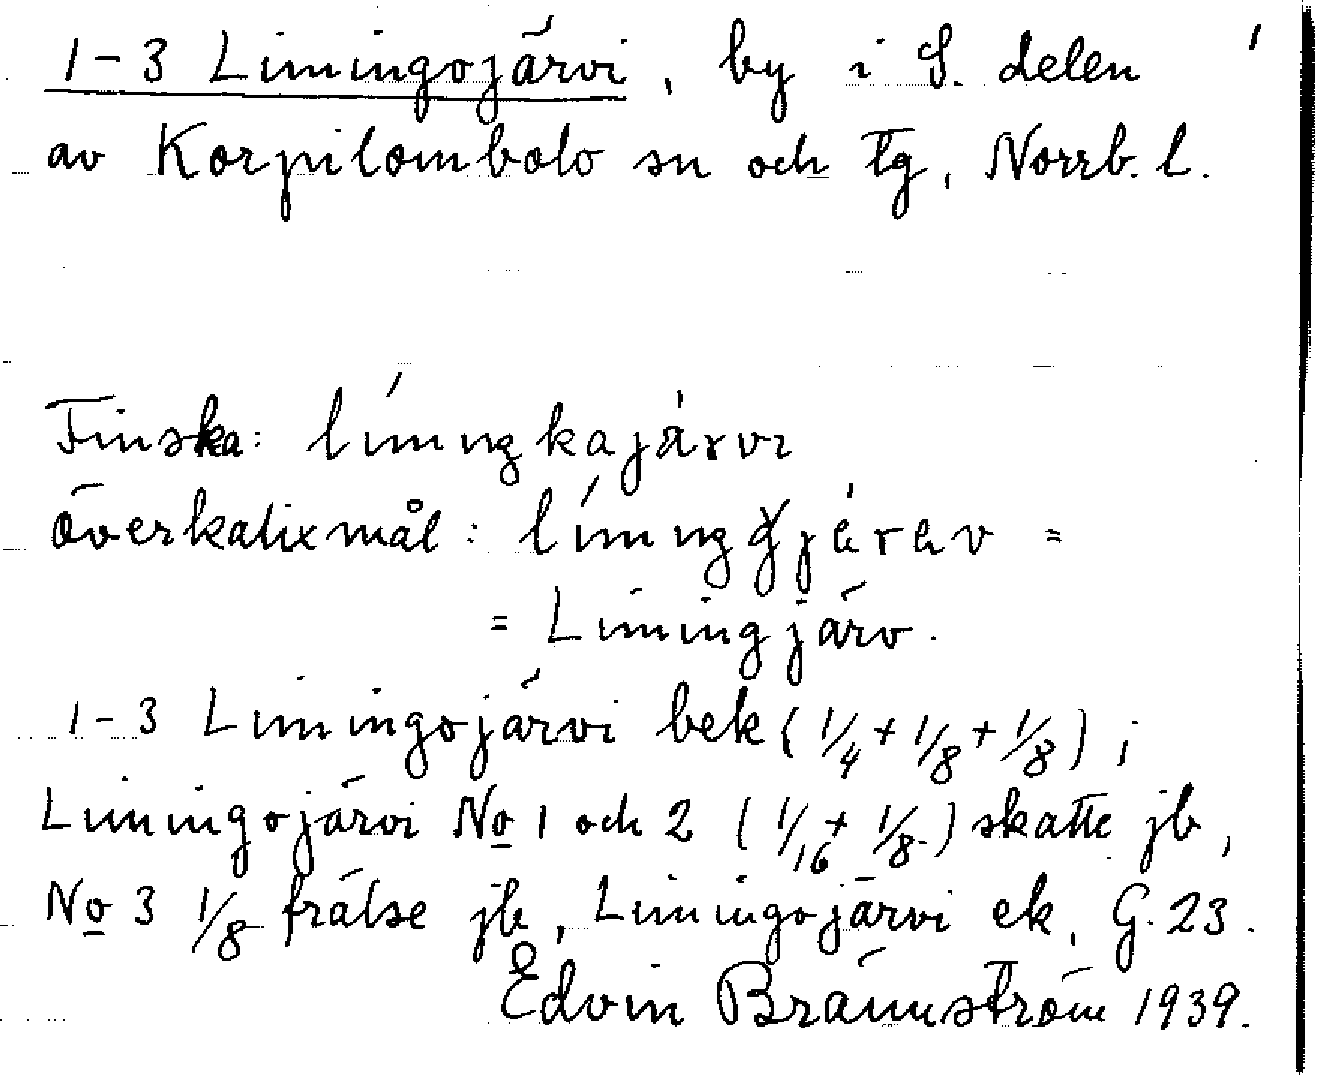 1-3 Limingojärvi, by i S. delen
av Korpilombolo sn och tg, Norrb. l.
Finska: límiŋkajä́rvi
Överkalixmål: =
= Limingjärv.
1-3 Limingojärvi bek (1/4 + 1/8 + 1/8);
Limingojärvi No 1 och 2 (1/16 + 1/8) skatte jb,
No 3 1/8 frälse jb, Limingojärvi ek, G. 23.
Edvin Brännström 1939.